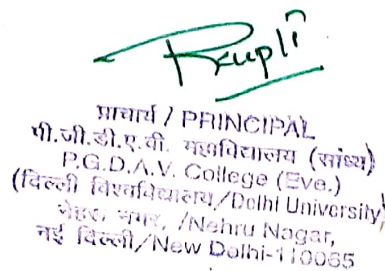 प्राचार्य / PRINCIPAL
पी.जी.डी.ए.वी. महाविद्यालय (सांध्य)
P.G.D.A.V. College (Eve.)
(दिल्ली विश्वविद्यालय/Delhi University)
नेहरू नगर, /Nehru Nagar,
नई दिल्ली/New Delhi-110065